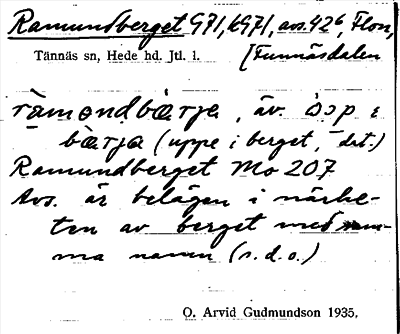 Ramundberget 971, 6971, avs. 42⁶, Flon,
Tännäs sn, Hede hd. Jtl. l. [Funnäsdalen
ràmondbàrja, äv. òɔp i
bàrja (uppe i berget, – det.)
Ramundberget Mo 207
Avs. är belägen i närhe-
ten av berget med sam-
ma namn (s.d.o.)
O. Arvid Gudmundson 1935.